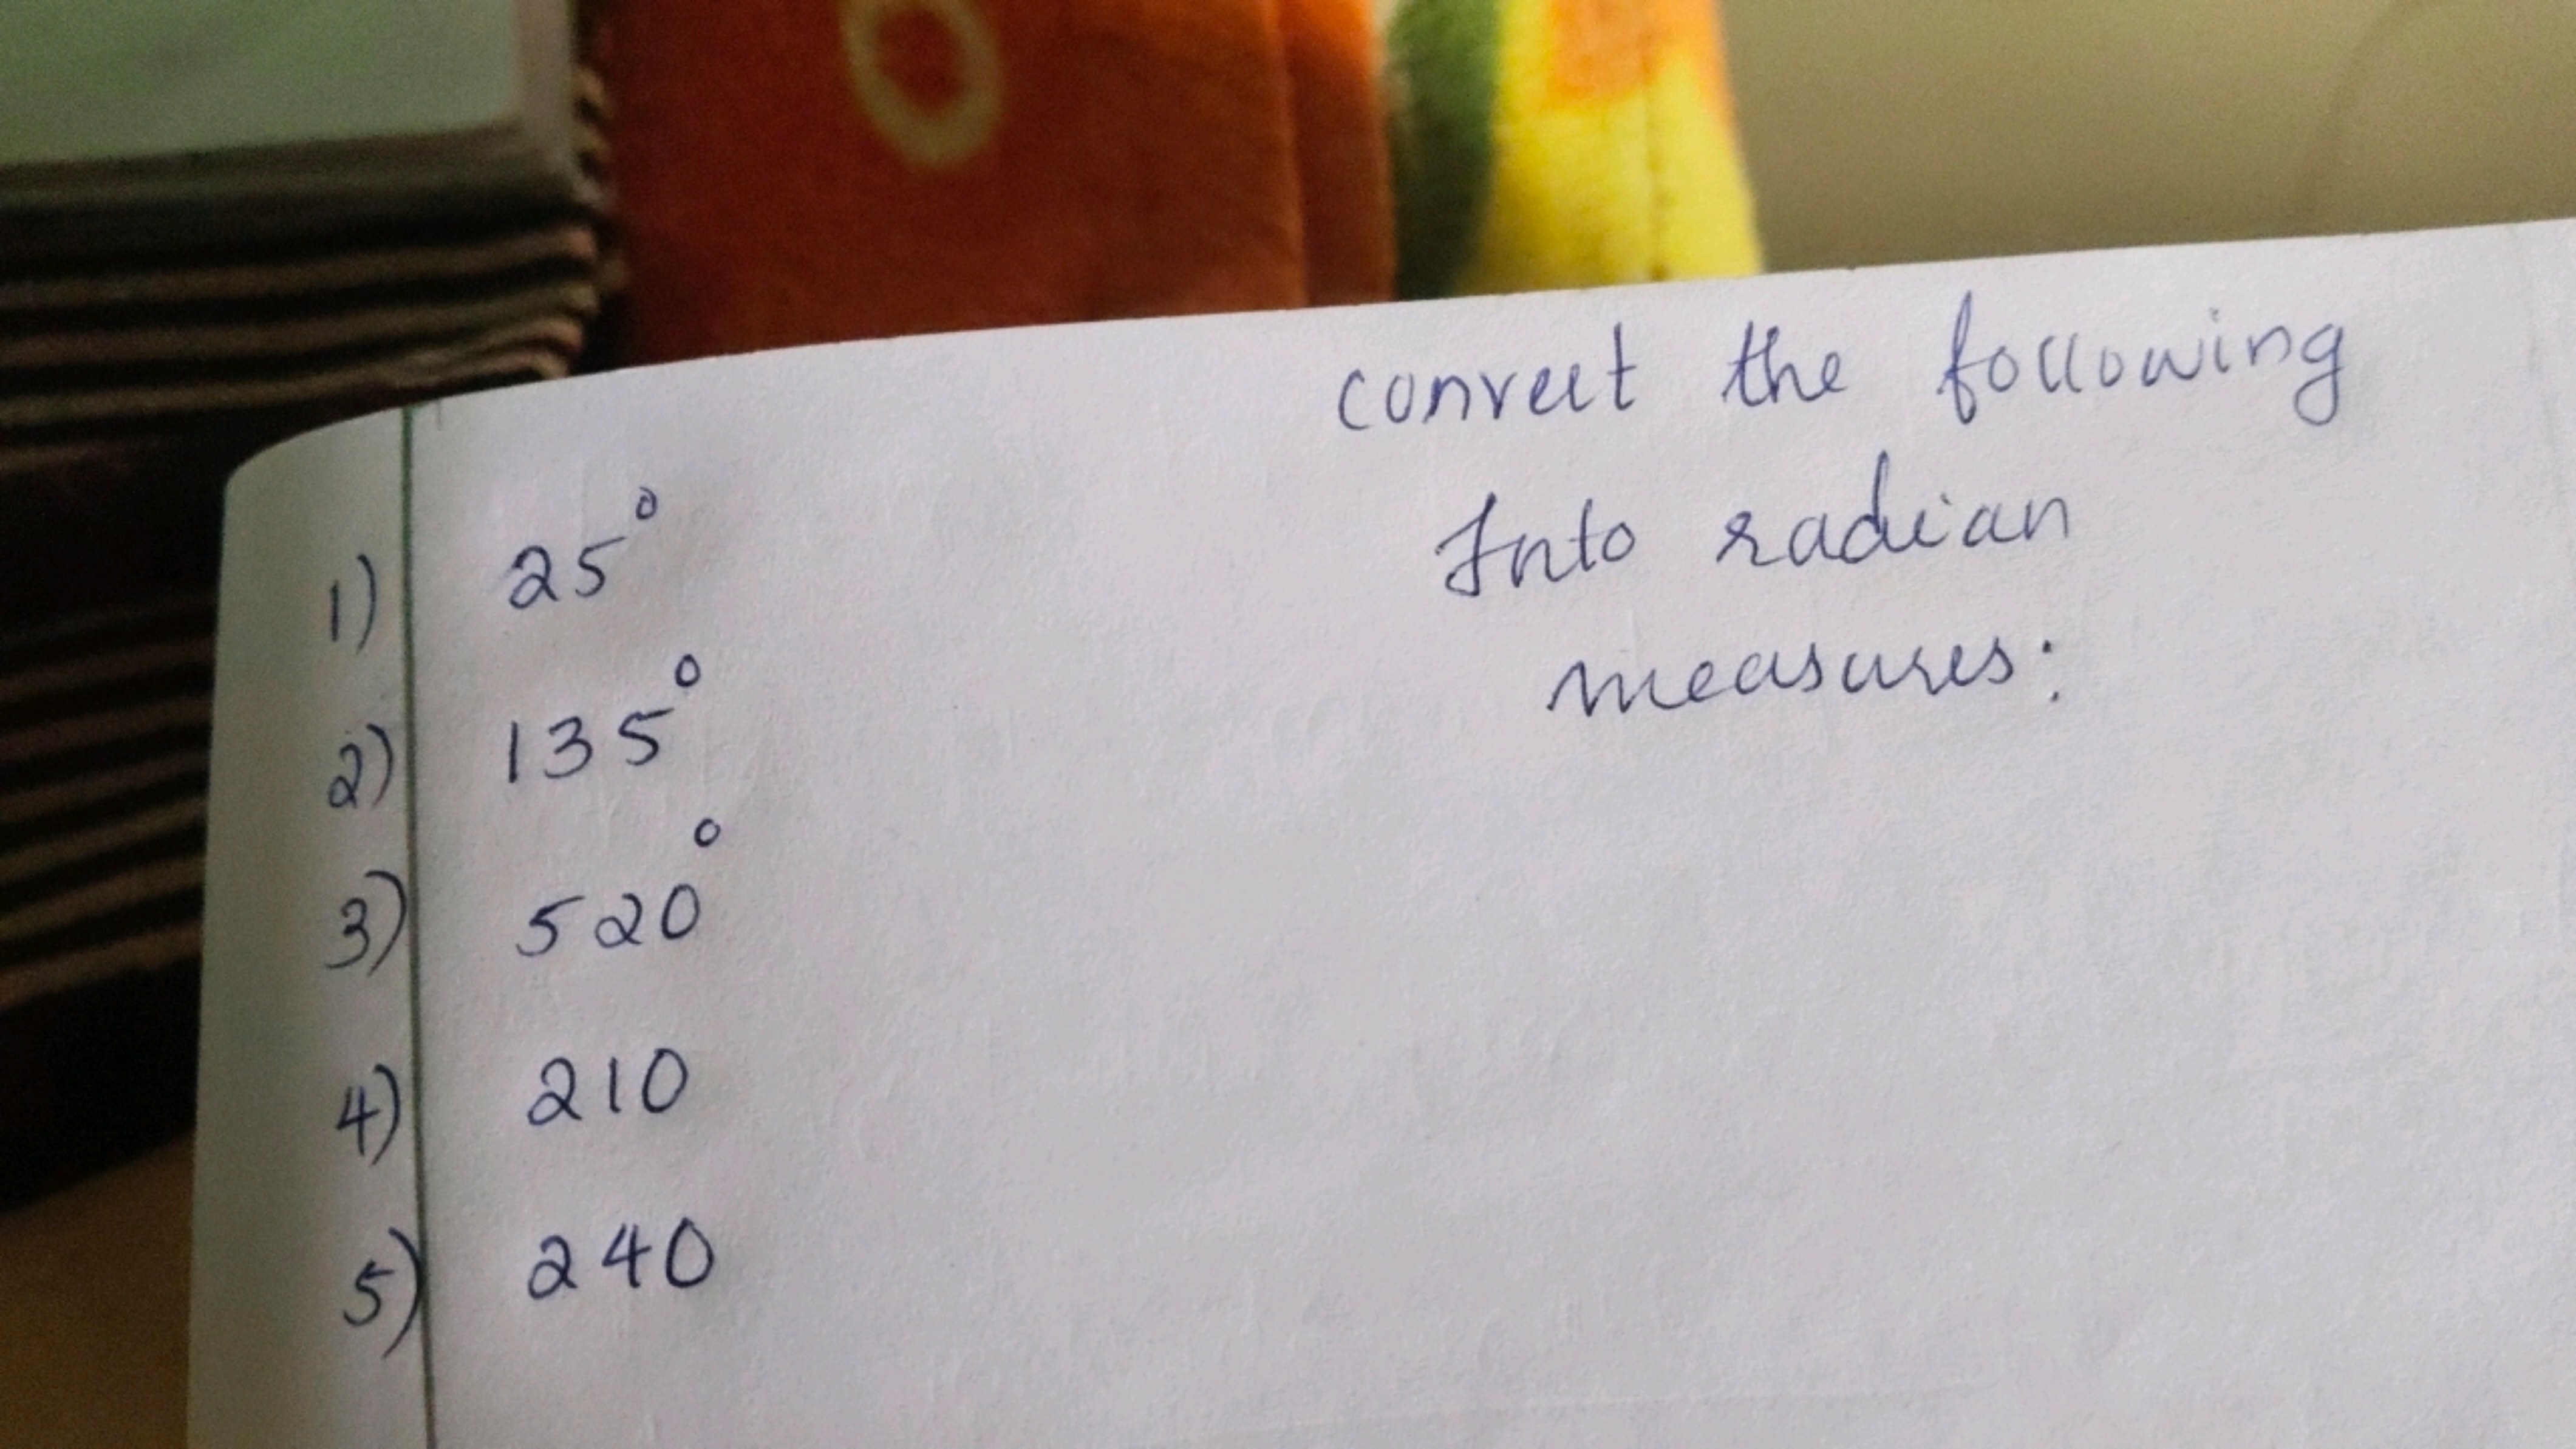 convert the following
Into radian
measures:
1) 25°
2) 135°
3) 520°
4) 210
5) 240